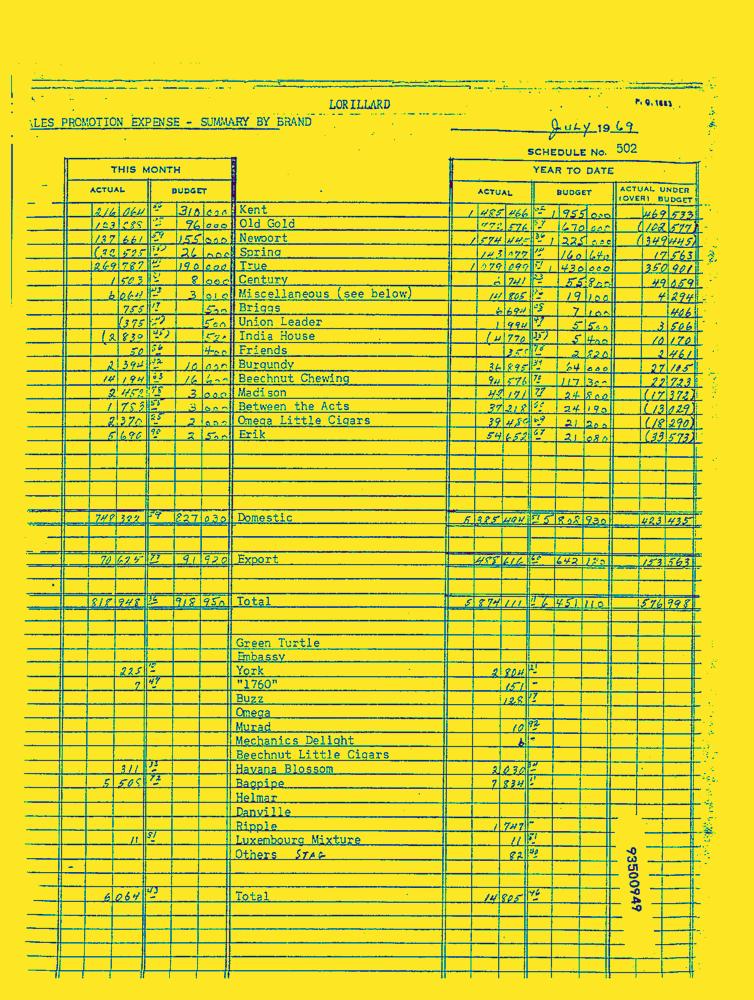 LORILLARD
P. O. 1883
LES PROMOTION EXPENSE - SUMMARY BY BRAND
JULY 1969
SCHEDULE No. 502
THIS MONTH YEAR TO DATE
ACTUAL BUDGET ACTUAL BUDGET ACTUAL UNDER (OVER) BUDGET
310 000 Kent 1 485 466 1 955 000 469 533
96 000 Old Gold 670 000 (102 577)
137 661 155 000 Newport 1 574 445 1 225 000 (349 445)
26 000 Spring 143 077 160 640 17 563
269 787 190 000 True 1 079 099 1 430 000 350 901
1 503 8 000 Century 6 741 55 800 49 059
6 064 43 3 010 Miscellaneous (see below) 14 805 19 100 4 294
755 500 Briggs 6 694 7 100 406
(375) 500 Union Leader 1 994 5 500 3 506
(2 839) India House (4 770) 5 400 10 170
50 400 Friends 2 820 2 461
2 394 10 000 Burgundy 36 895 64 000 27 105
14 194 Beechnut Chewing 94 576 117 300 22 723
2 452 3 000 Madison 42 171 24 800 (17 372)
1 753 3 000 Between the Acts 37 218 24 190 (13 029)
2 370 2 000 Omega Little Cigars 39 490 21 200 (18 290)
5 690 2 500 Erik 54 652 21 080 (33 573)
827 030 Domestic 5 385 494 5 808 930 423 435
70 625 91 920 Export 488 616 642 180 153 563
818 948 918 950 Total 5 874 111 6 451 110 576 998
Green Turtle
Embassy
225 York 2 804
7 49 "1760" 151 -
Buzz 128
Omega
Murad 10 92
Mechanics Delight 6 -
Beechnut Little Cigars
311 Havana Blossom 2 030
5 505 Bagpipe 7 834
Helmar
Danville
Ripple 1 747 -
11 81 Luxembourg Mixture 11 81
Others STAG 82
6 064 43 Total 14 805 46
93500949